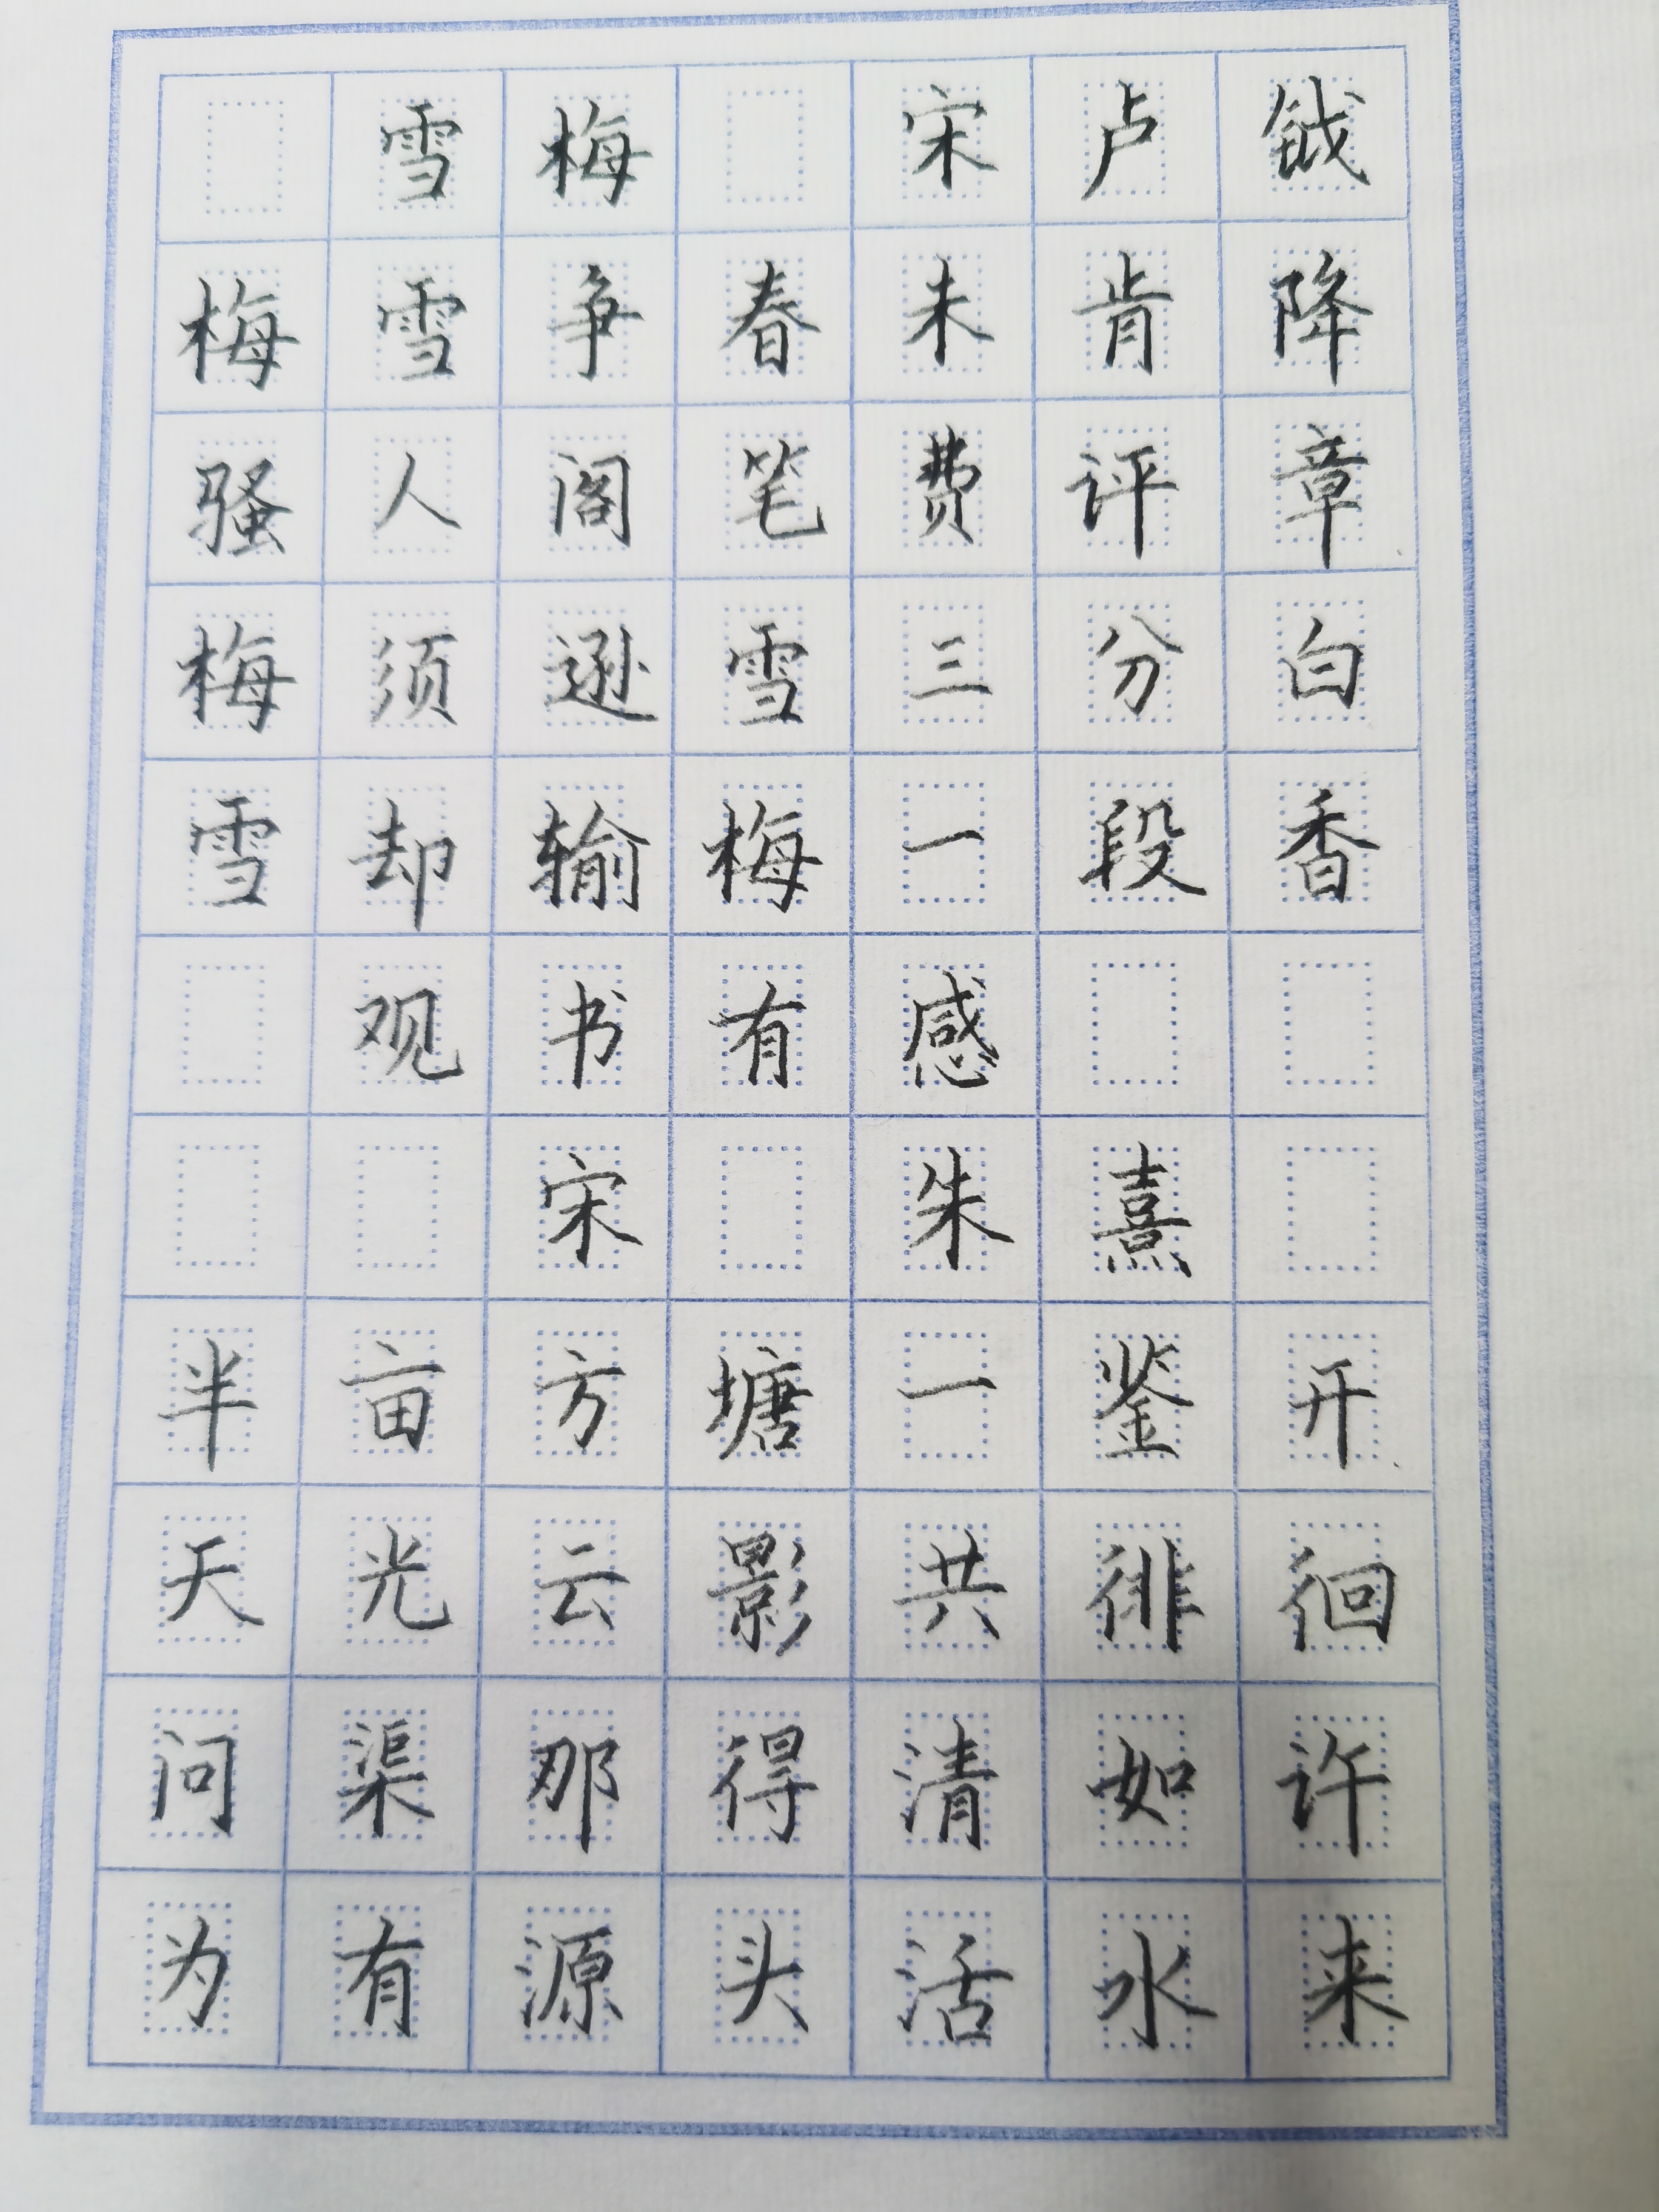 雪梅 宋卢钺
梅雪争春未肯降
骚人阁笔费评章
梅须逊雪三分白
雪却输梅一段香
观书有感
宋 朱熹
半亩方塘一鉴开
天光云影共徘徊
问渠那得清如许
为有源头活水来